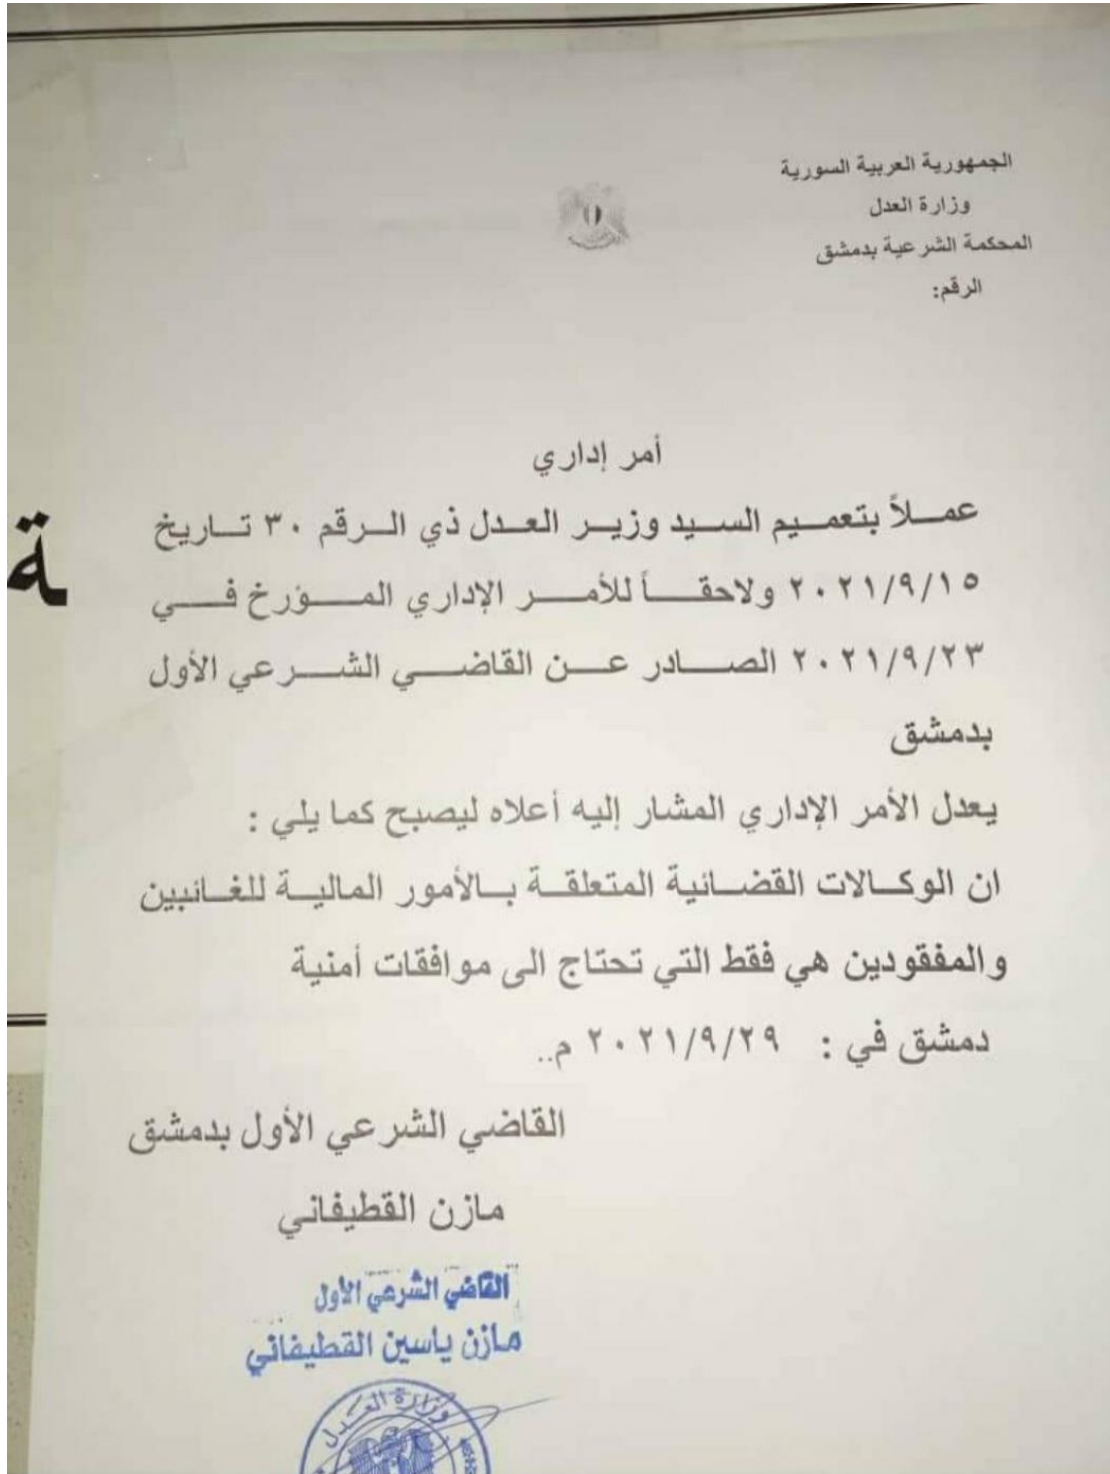 الجمهورية العربية السورية
وزارة العدل
المحكمة الشرعية بدمشق
الرقم:
أمر إداري
عملاً بتعميم السيد وزير العدل ذي الرقم ٣٠ تاريخ
٢٠٢١/٩/١٥ ولاحقاً للأمر الإداري المؤرخ في
٢٠٢١/٩/٢٣ الصادر عن القاضي الشرعي الأول
بدمشق
يعدل الأمر الإداري المشار إليه أعلاه ليصبح كما يلي :
ان الوكالات القضائية المتعلقة بالأمور المالية للغائبين
والمفقودين هي فقط التي تحتاج الى موافقات أمنية
دمشق في : ٢٠٢١/٩/٢٩ م..
القاضي الشرعي الأول بدمشق
مازن القطيفاني
القاضي الشرعي الأول
مازن ياسين القطيفاني
وزارة العدل
ة